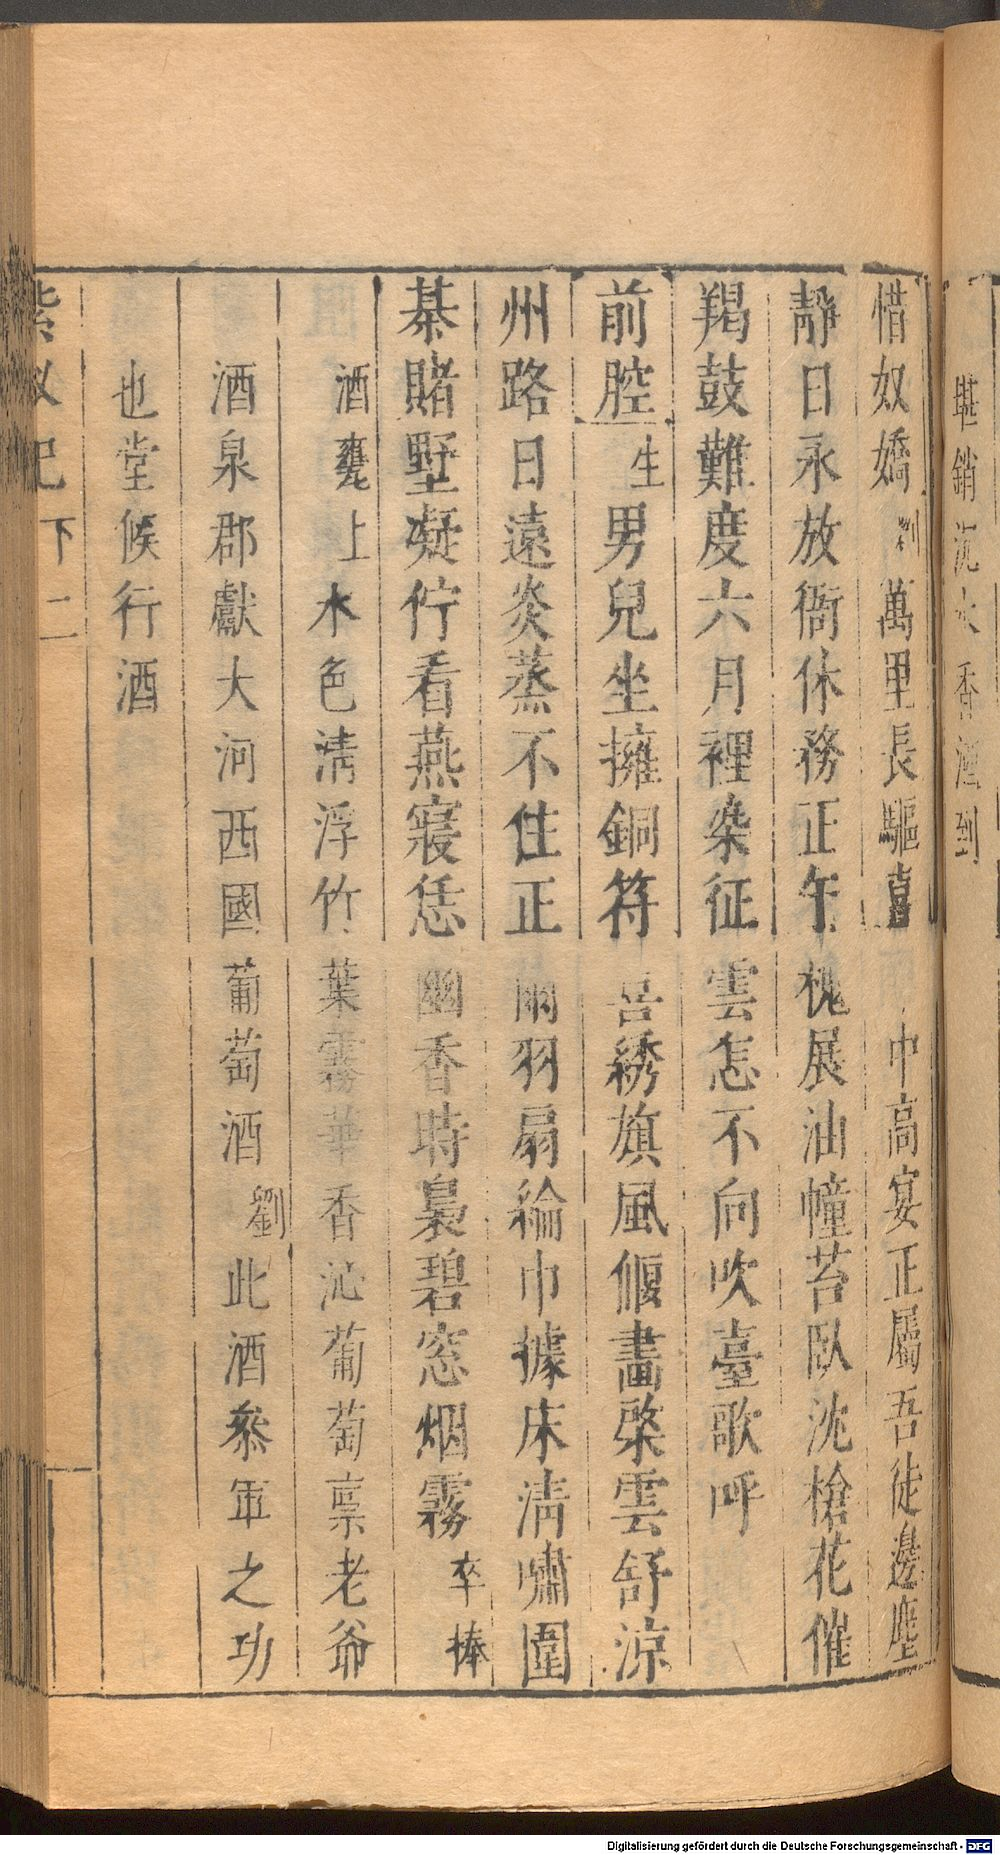 堪銷沉水香濃到
惜奴嬌劉萬里長驅喜中高宴正屬吾徒邊塵
靜日永放衙休務正午槐展油幢苔臥沈槍花催
羯鼓難度六月裡染征雲怎不向吹臺歌呼
前腔生男兒坐擁銅符吾綉旗風偃畫棨雲舒涼
州路日遠炎蒸不住正雨羽扇綸巾據床清嘯圍
棊賭墅凝佇看燕寢恁幽香時裊碧窓烟霧卒捧
酒甕上水色清浮竹葉霧華香沁葡萄稟老爺
酒泉郡獻大河西國葡萄酒劉此酒叅軍之功
也堂候行酒
紫釵記下二
Digitalisierung gefördert durch die Deutsche Forschungsgemeinschaft - DFG